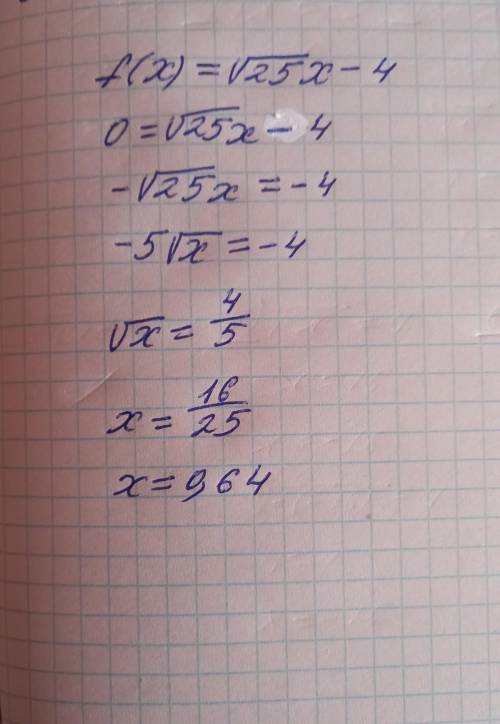 f(x) = √25x - 4
0 = √25x - 4
-√25x = -4
-5√x = -4
√x = 4/5
x = 16/25
x = 0,64